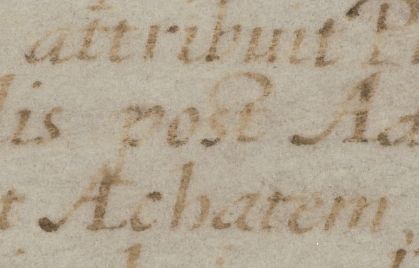 attribuit
lis post Ad
t Achatem,